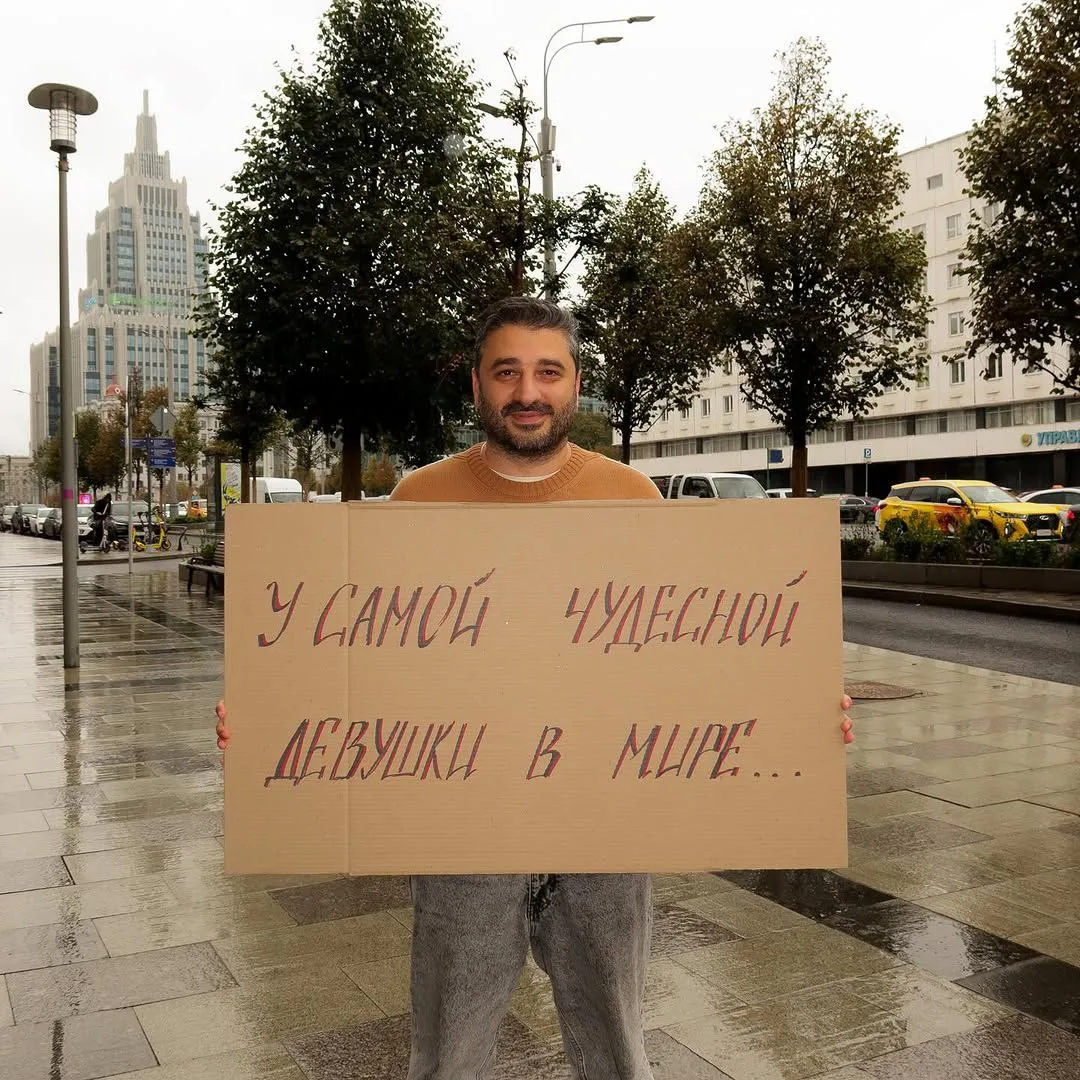 У САМОЙ ЧУДЕСНОЙ
ДЕВУШКИ В МИРЕ...